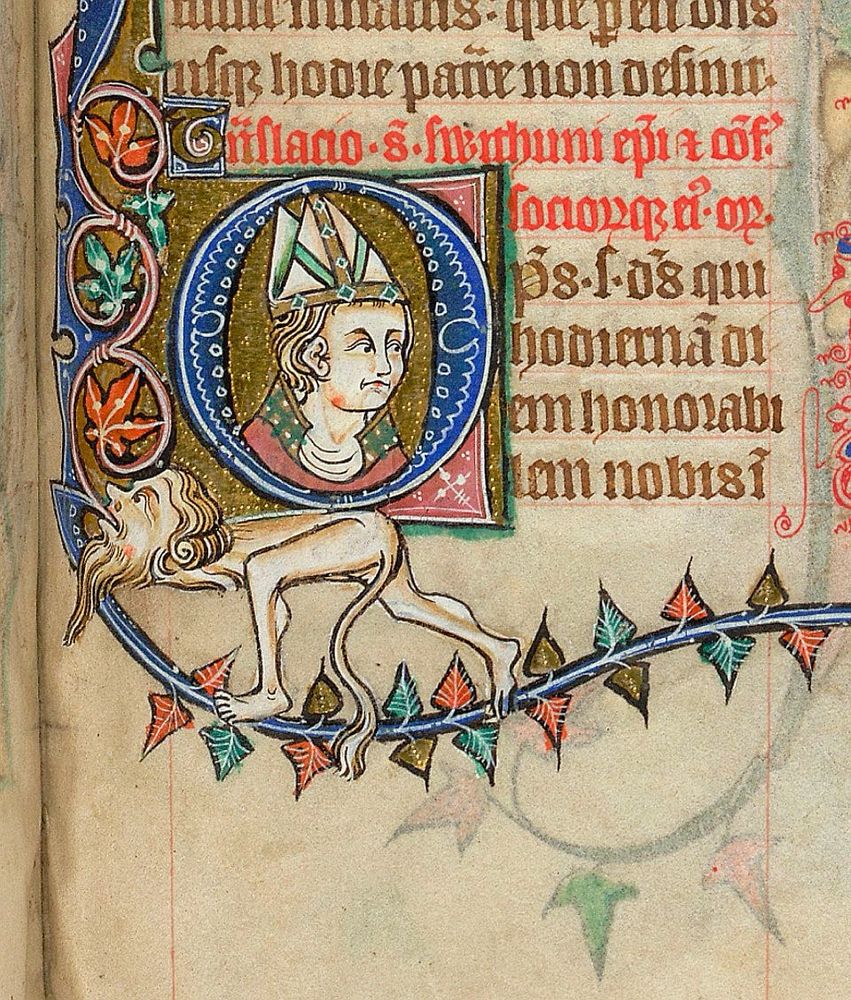 que p̄ eū dn̄s
usqꝫ hodie pat͛re non desinit.
Tn̄slacio · s̄ · swithuni ep̄i ⁊ cōf.
sociorꝝqꝫ ei᾿ · or̄.
Op̄s · s · d̄s qui
hodiernā di
em honorabi
lem nobis ī